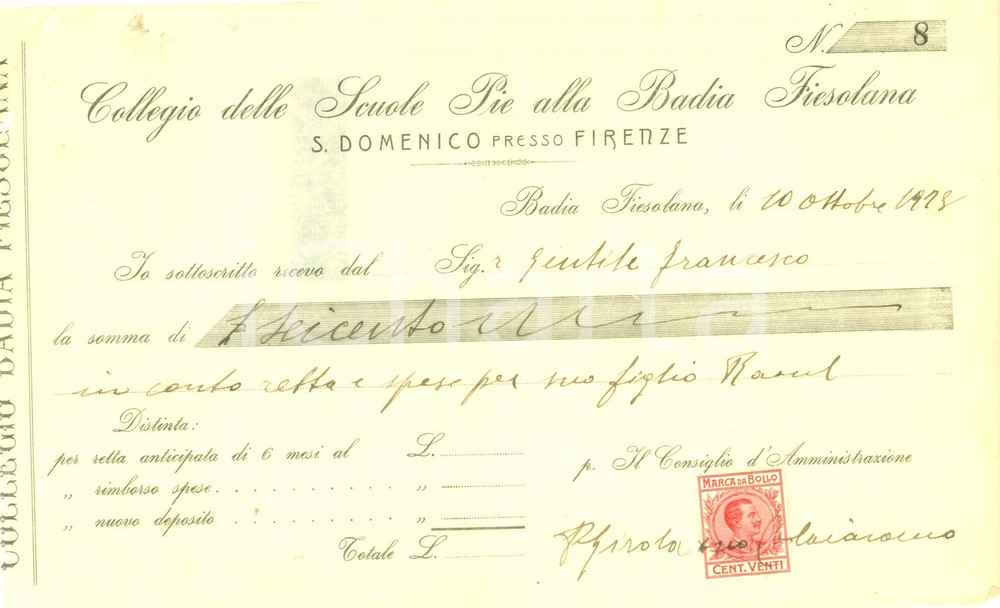 N. 8
Collegio delle Scuole Pie alla Badia Fiesolana
S. DOMENICO PRESSO FIRENZE
Badia Fiesolana, li 10 Ottobre 1928
Io sottoscritto ricevo dal Sig.r Gentile Francesco
la somma di £ Seicento
in conto retta e spese per suo figlio Raoul
Distinta:
per retta anticipata di 6 mesi al L.
„ rimborso spese „
„ nuovo deposito „
Totale L.
p. Il Consiglio d'Amministrazione
MARCA DA BOLLO
CENT. VENTI
COLLEGIO BADIA FIESOLANA